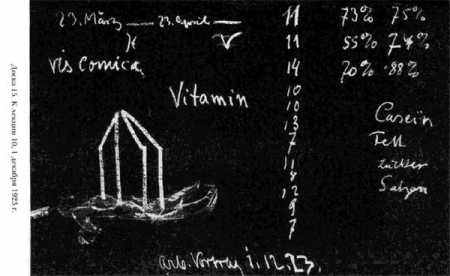 Доска 15. К лекции 10, 1 декабря 1923 г.
23. März — 23. April —
♓ ♈
vis comica
Vitamin
11 73% 75%
11 55% 74%
14 70% 88%
10
10
13
7
11
8
12
9
7
Casein
Fett
Zucker
Salzen
arb. Vortrag 1.12.23.